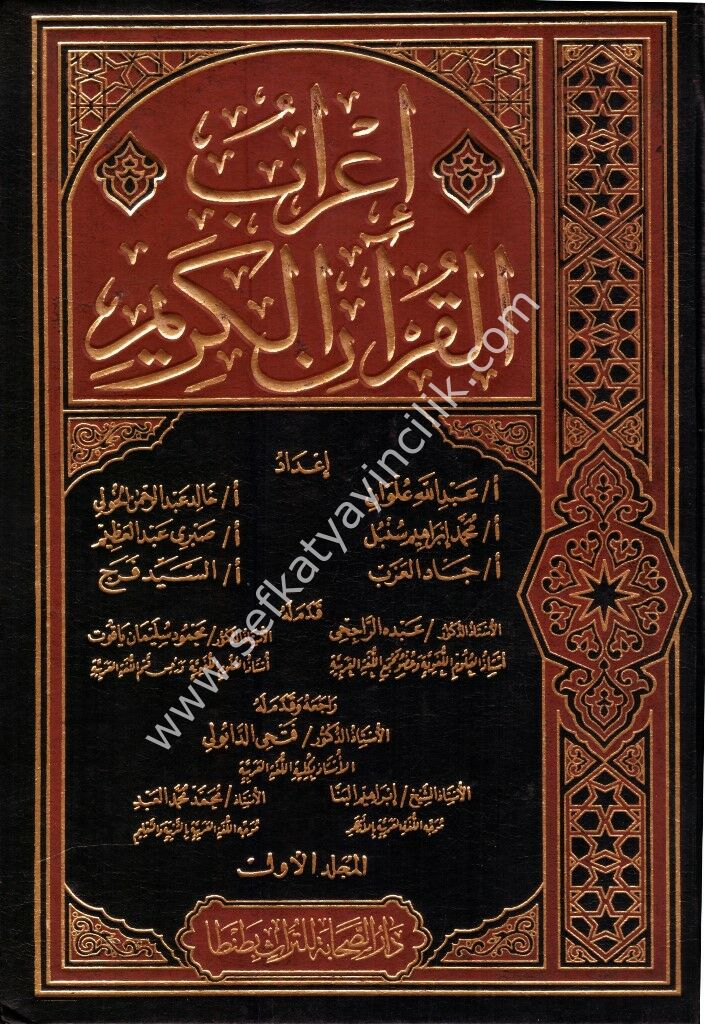 إعراب
القرآن الكريم
إعداد
أ/ عبد الله علوان أ/ خالد عبد الرحمن الخولي
أ/ محمد إبراهيم سنبل أ/ صبري عبد العظيم
أ/ جاد العزب أ/ السيد فرج
قدم له
الأستاذ الدكتور/ عبده الراجحي الأستاذ الدكتور/ محمود سليمان ياقوت
أستاذ العلوم اللغوية وعضو مجمع اللغة العربية أستاذ العلوم اللغوية ورئيس قسم اللغة العربية
راجعه وقدم له
الأستاذ الدكتور/ فتحي الدابولي
الأستاذ بكلية اللغة العربية
الأستاذ الشيخ/ إبراهيم البنا الأستاذ/ محمد محمد العبد
موجه اللغة العربية بالأزهر موجه اللغة العربية بالتربية والتعليم
المجلد الأول
دار الصحابة للتراث بطنطا
www.sefkatyayincilik.com